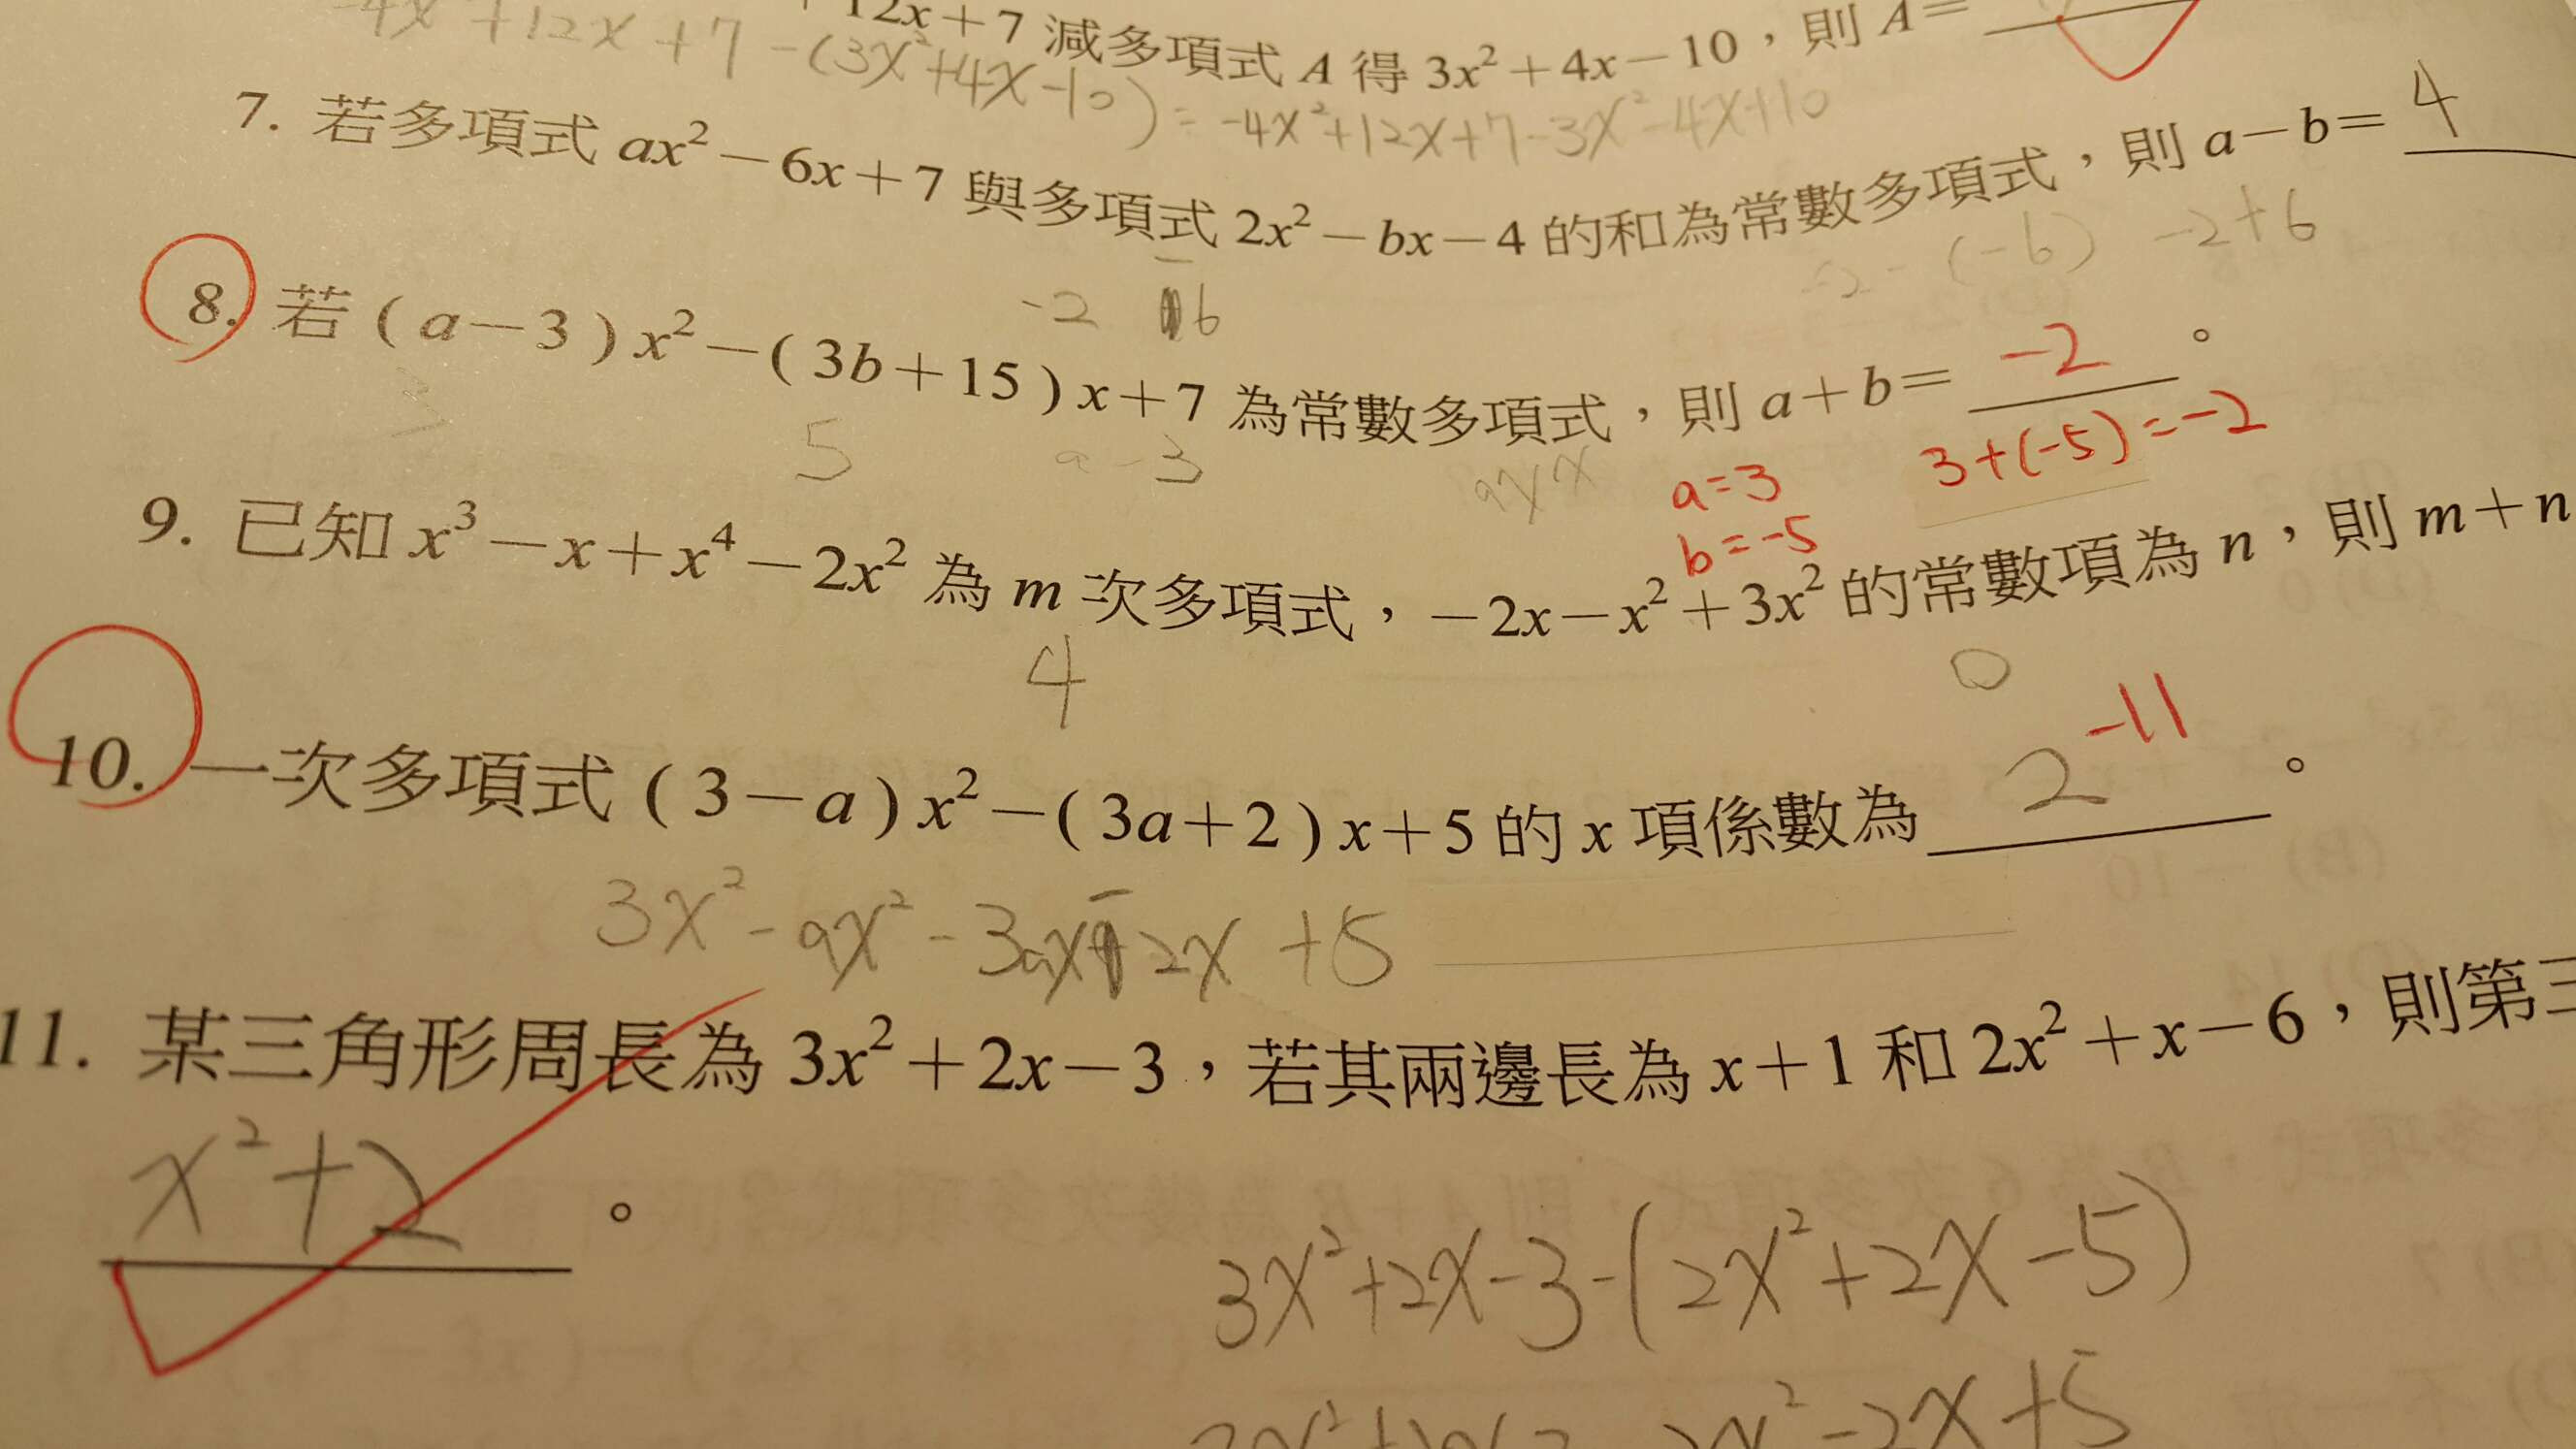 -4x +12x+7-(3x²+4x-10)=-4x²+12x+7-3x²-4x+10
12x+7 減多項式 A 得 3x²+4x-10，則 A=
7. 若多項式 ax²-6x+7 與多項式 2x²-bx-4 的和為常數多項式，則 a-b= 4
-2 -6
-2-(-6) -2+6
8. 若 (a-3)x²-(3b+15)x+7 為常數多項式，則 a+b= -2 。
3 5 a-3
a=3
b=-5
3+(-5)=-2
9. 已知 x³-x+x⁴-2x² 為 m 次多項式，-2x-x²+3x² 的常數項為 n，則 m+n
4 0
10. 一次多項式 (3-a)x²-(3a+2)x+5 的 x 項係數為 2 -11 。
3x²-ax²-3ax-2x+5
11. 某三角形周長為 3x²+2x-3，若其兩邊長為 x+1 和 2x²+x-6，則第三
x²+2 。
3x²+2x-3-(2x²+2x-5)
-2x+5